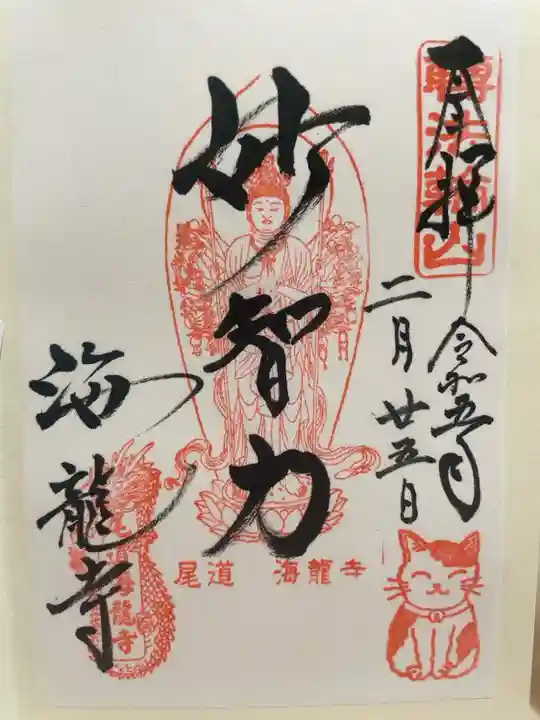 奉拝
轉法輪山
令和五年
二月廿五日
妙智力
海龍寺
尾道 海龍寺
尾道海龍寺